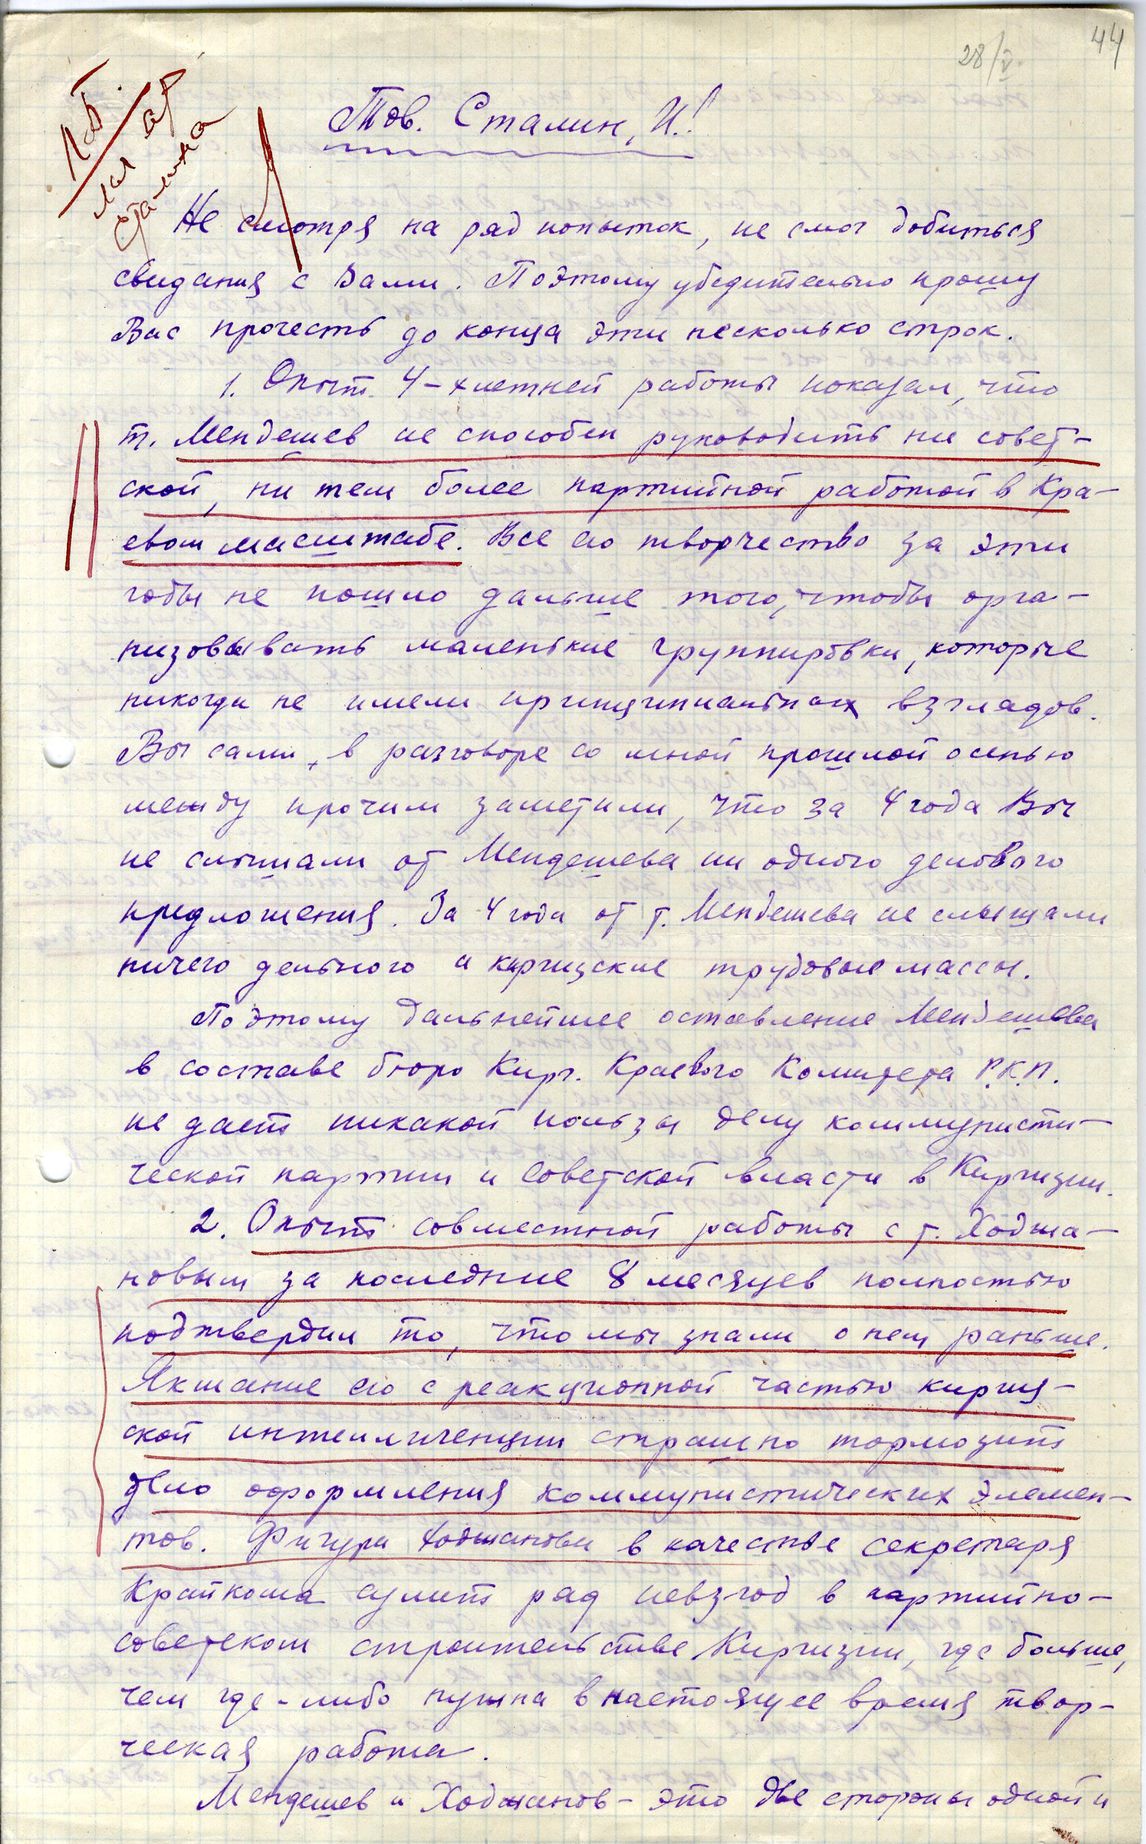 44
28/V.
П.Б.
мой ар
Сталина
Тов. Сталин, И.!
Не смотря на ряд попыток, не смог добиться
свидания с Вами. Поэтому убедительно прошу
Вас прочесть до конца эти несколько строк.
1. Опыт 4-хлетней работы показал, что
т. Мендешев не способен руководить ни совет-
ской, ни тем более партийной работой в Кра-
евом масштабе. Все его творчество за эти
годы не пошло дальше того, чтобы орга-
низовывать маленькие группировки, которые
никогда не имели принципиальных взглядов.
Вы сами, в разговоре со мной прошлой осенью
между прочим заметили, что за 4 года Вы
не слышали от Мендешева ни одного делового
предложения. За 4 года от т. Мендешева не слышали
ничего дельного и киргизские трудовые массы.
Поэтому дальнейшее оставление Мендешева
в составе бюро Кирг. Краевого Комитета Р.К.П.
не даст никакой пользы делу коммунисти-
ческой партии и советской власти в Киргизии.
2. Опыт совместной работы с т. Ходжа-
новым за последние 8 месяцев полностью
подтвердил то, что мы знали о нем раньше.
Якшание его с реакционной частью киргиз-
ской интеллигенции страшно тормозит
дело оформления коммунистических элемен-
тов. Фигура Ходжанова в качестве секретаря
Крайкома сулит ряд невзгод в партийно-
советском строительстве Киргизии, где больше,
чем где-либо нужна в настоящее время твор-
ческая работа.
Мендешев и Ходжанов – это две стороны одной и